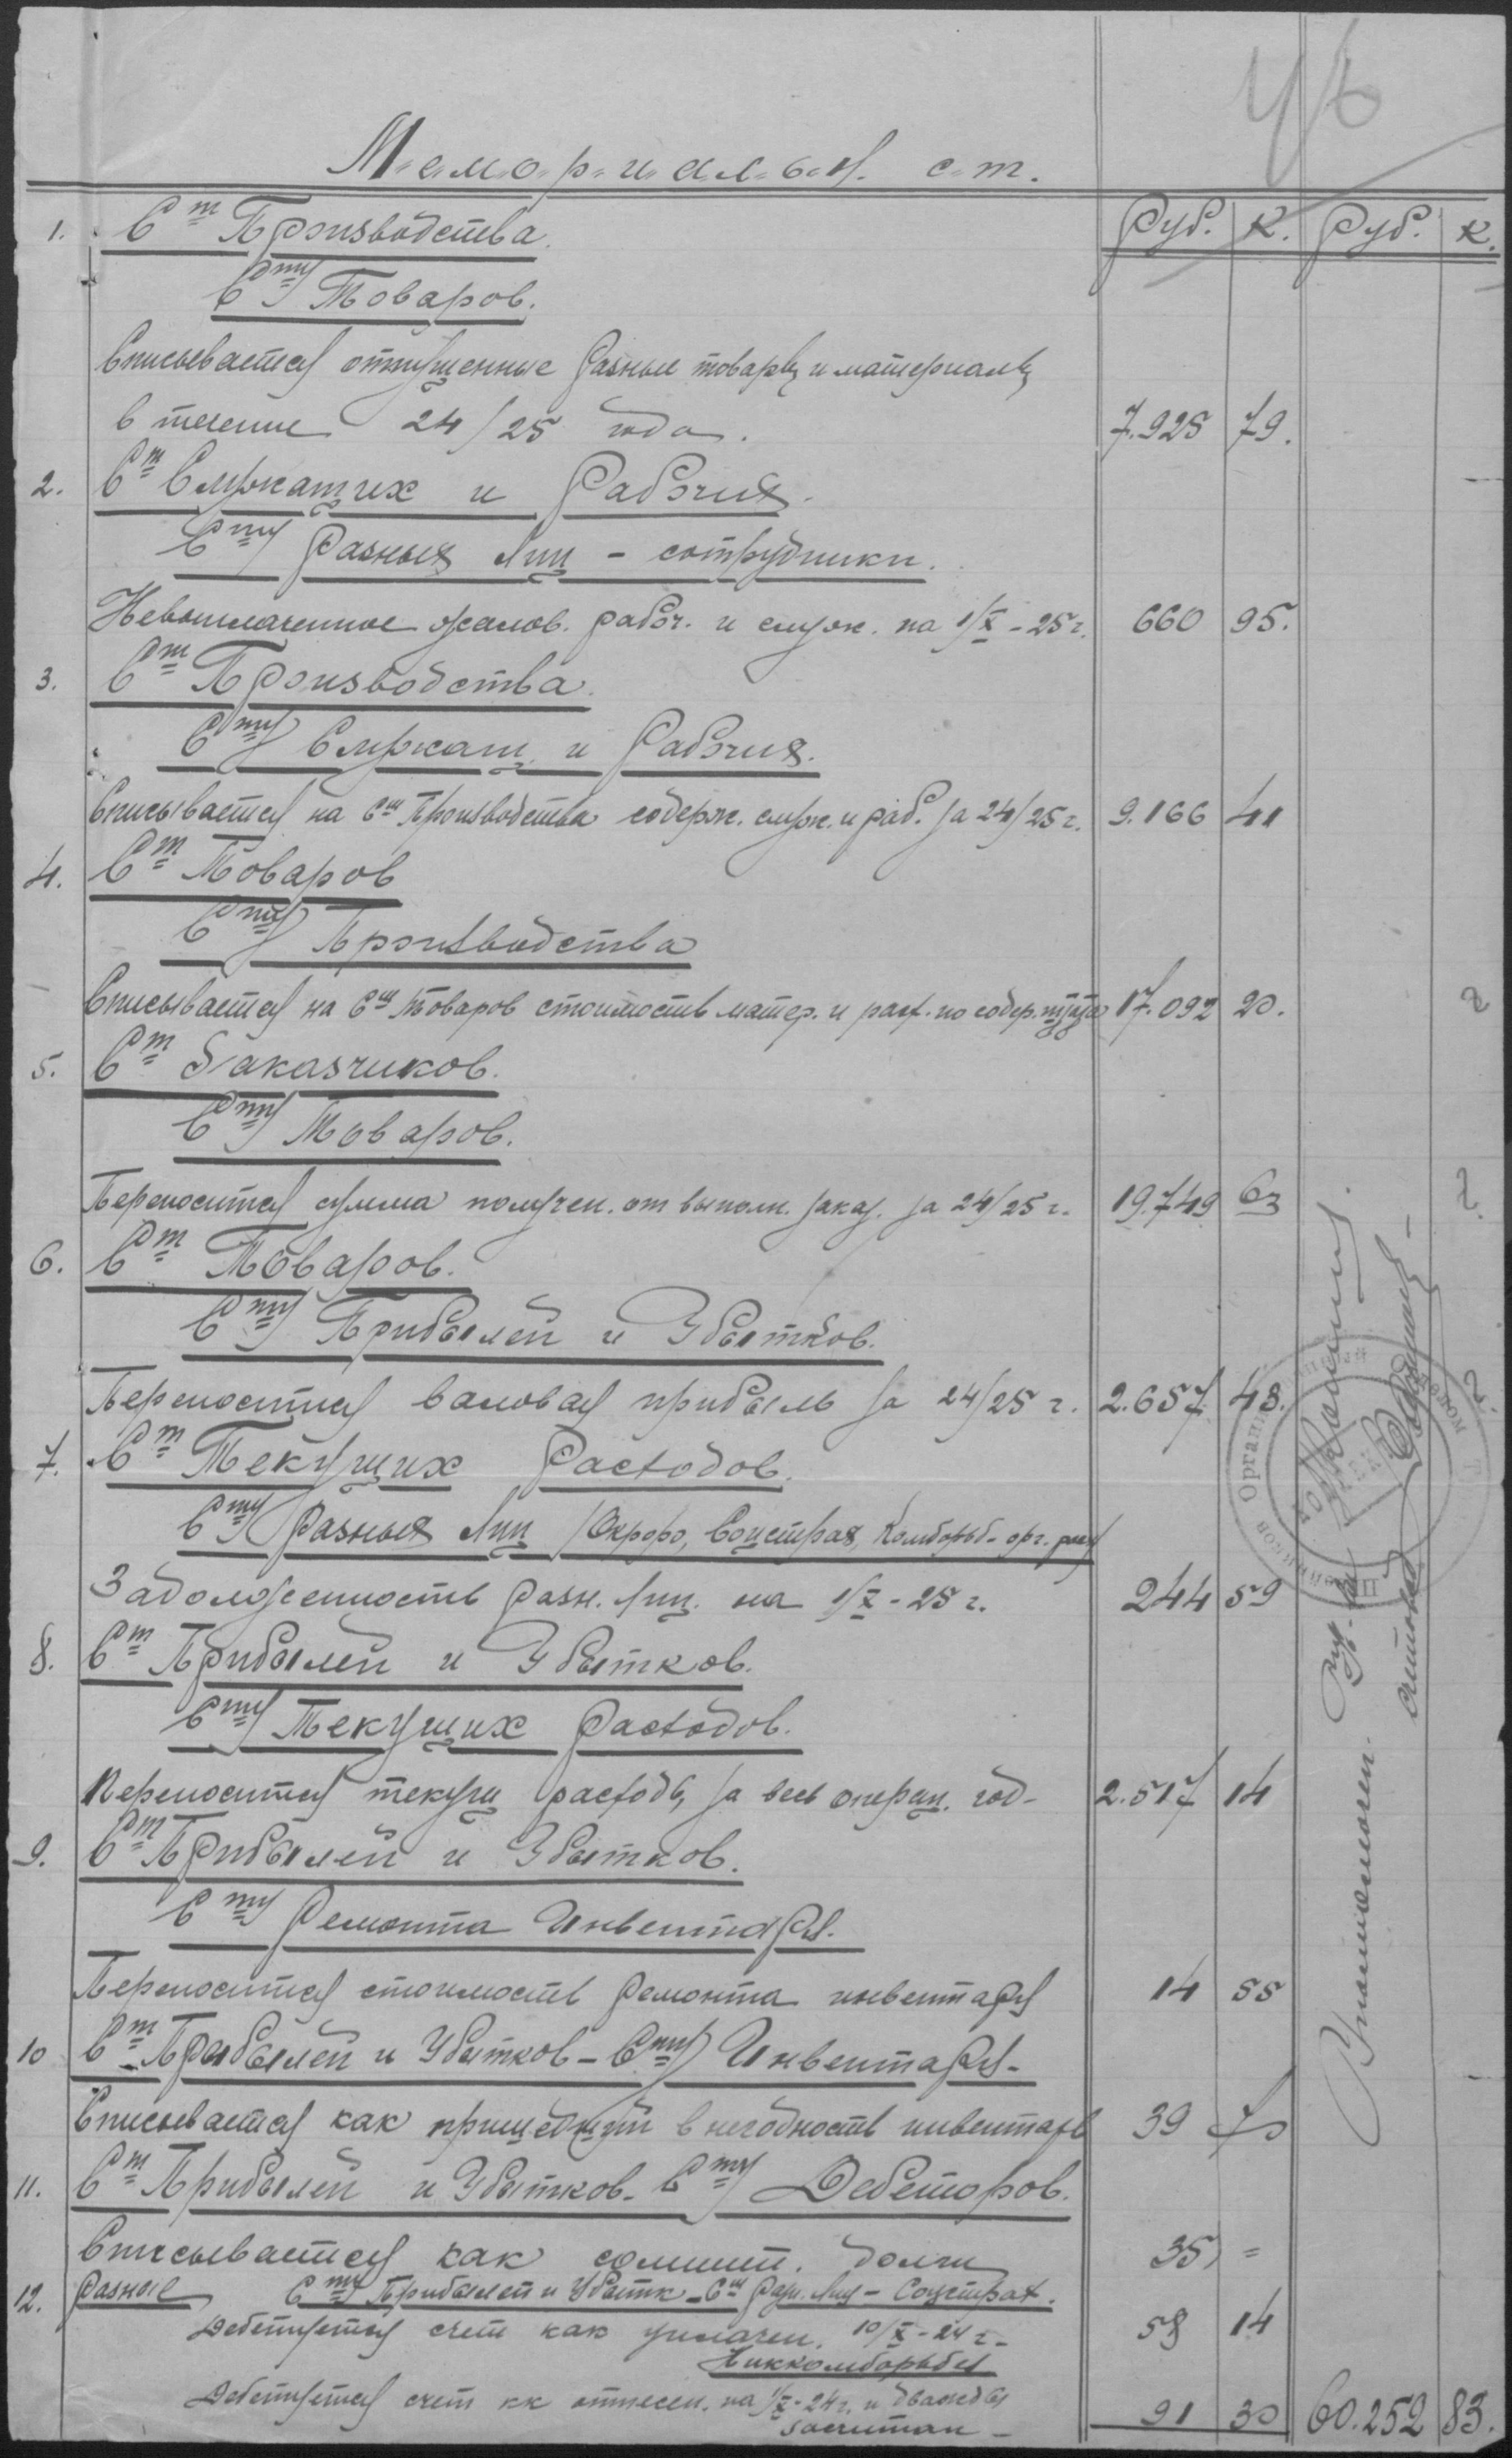 Мемориальн. ст.
Руб. К. Руб. К.
1. Ст Производства.
Сту Товаров.
Списывается отпущенные разные товары и материалы
в течение 24/25 года. 7.925 79.
2. Ст Служащих и Рабочих.
Сту Разных Лиц - сотрудники.
Невыплаченное жалов. рабоч. и служ. на 1/X - 25 г. 660 95.
3. Ст Производства.
Сту Служащ. и Рабочих.
Списывается на Сщ Производства содерж. служ. и раб. за 24/25 г. 9.166 41
4. Ст Товаров
Сту Производства
Списывается на Сщ Товаров стоимость матер. и расх. по содер. 17.092 20.
5. Ст Заказчиков.
Сту Товаров.
Переносится сумма получен. от выполн. заказ. за 24/25 г. 19.749 63
6. Ст Товаров.
Сту Прибылей и Убытков.
Переносится валовая прибыль за 24/25 г. 2.657 43.
7. Ст Текущих Расходов.
Сту Разных Лиц /Окрфо, Соцстрах,
Задолженность разн. Лиц. на 1/X - 25 г. 244 59
8. Ст Прибылей и Убытков.
Сту Текущих Расходов.
Переносится текущ расходы за весь операц. год - 2.517 14
9. Ст Прибылей и Убытков.
Сту Ремонта Инвентаря.
Переносится стоимость ремонта инвентаря 14 55
10 Ст Прибылей и Убытков - Сту Инвентаря -
Списывается как пришедший в негодность инвентарь 39 70
11. Ст Прибылей и Убытков - Сту Дебеторов.
Списывается как сомнит. долги 35 =
12. Разные Сту Прибылей и Убытк - Сщ Разн. Лиц - Соцстрах.
Дебетуется счет как уплачен. 10/X - 24 г. - 58 14
Никкомборьбы
Дебетуется счет кк отнесен. на 1/X - 24 г. и дважды
засчитан - 91 30 60.252 83.
Уполномочен.
счетовод